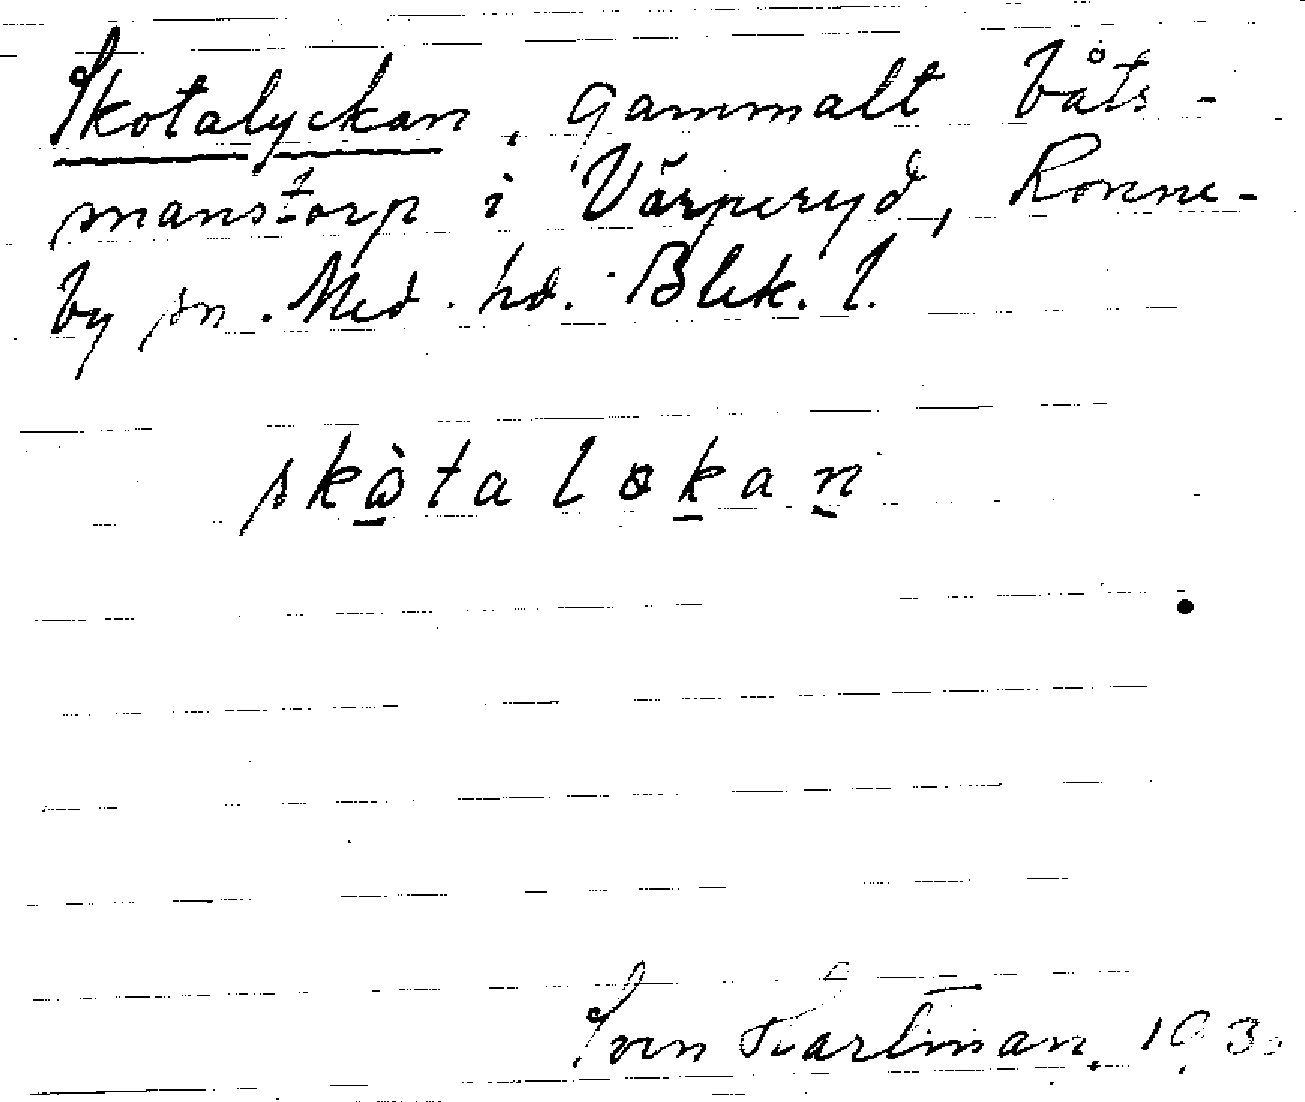 Skotalyckan, gammalt båts-
manstorp i Värperyd, Ronne-
by sn. Med. hd. Blek. l.
skòtaløkan
Sven Karlman, 193